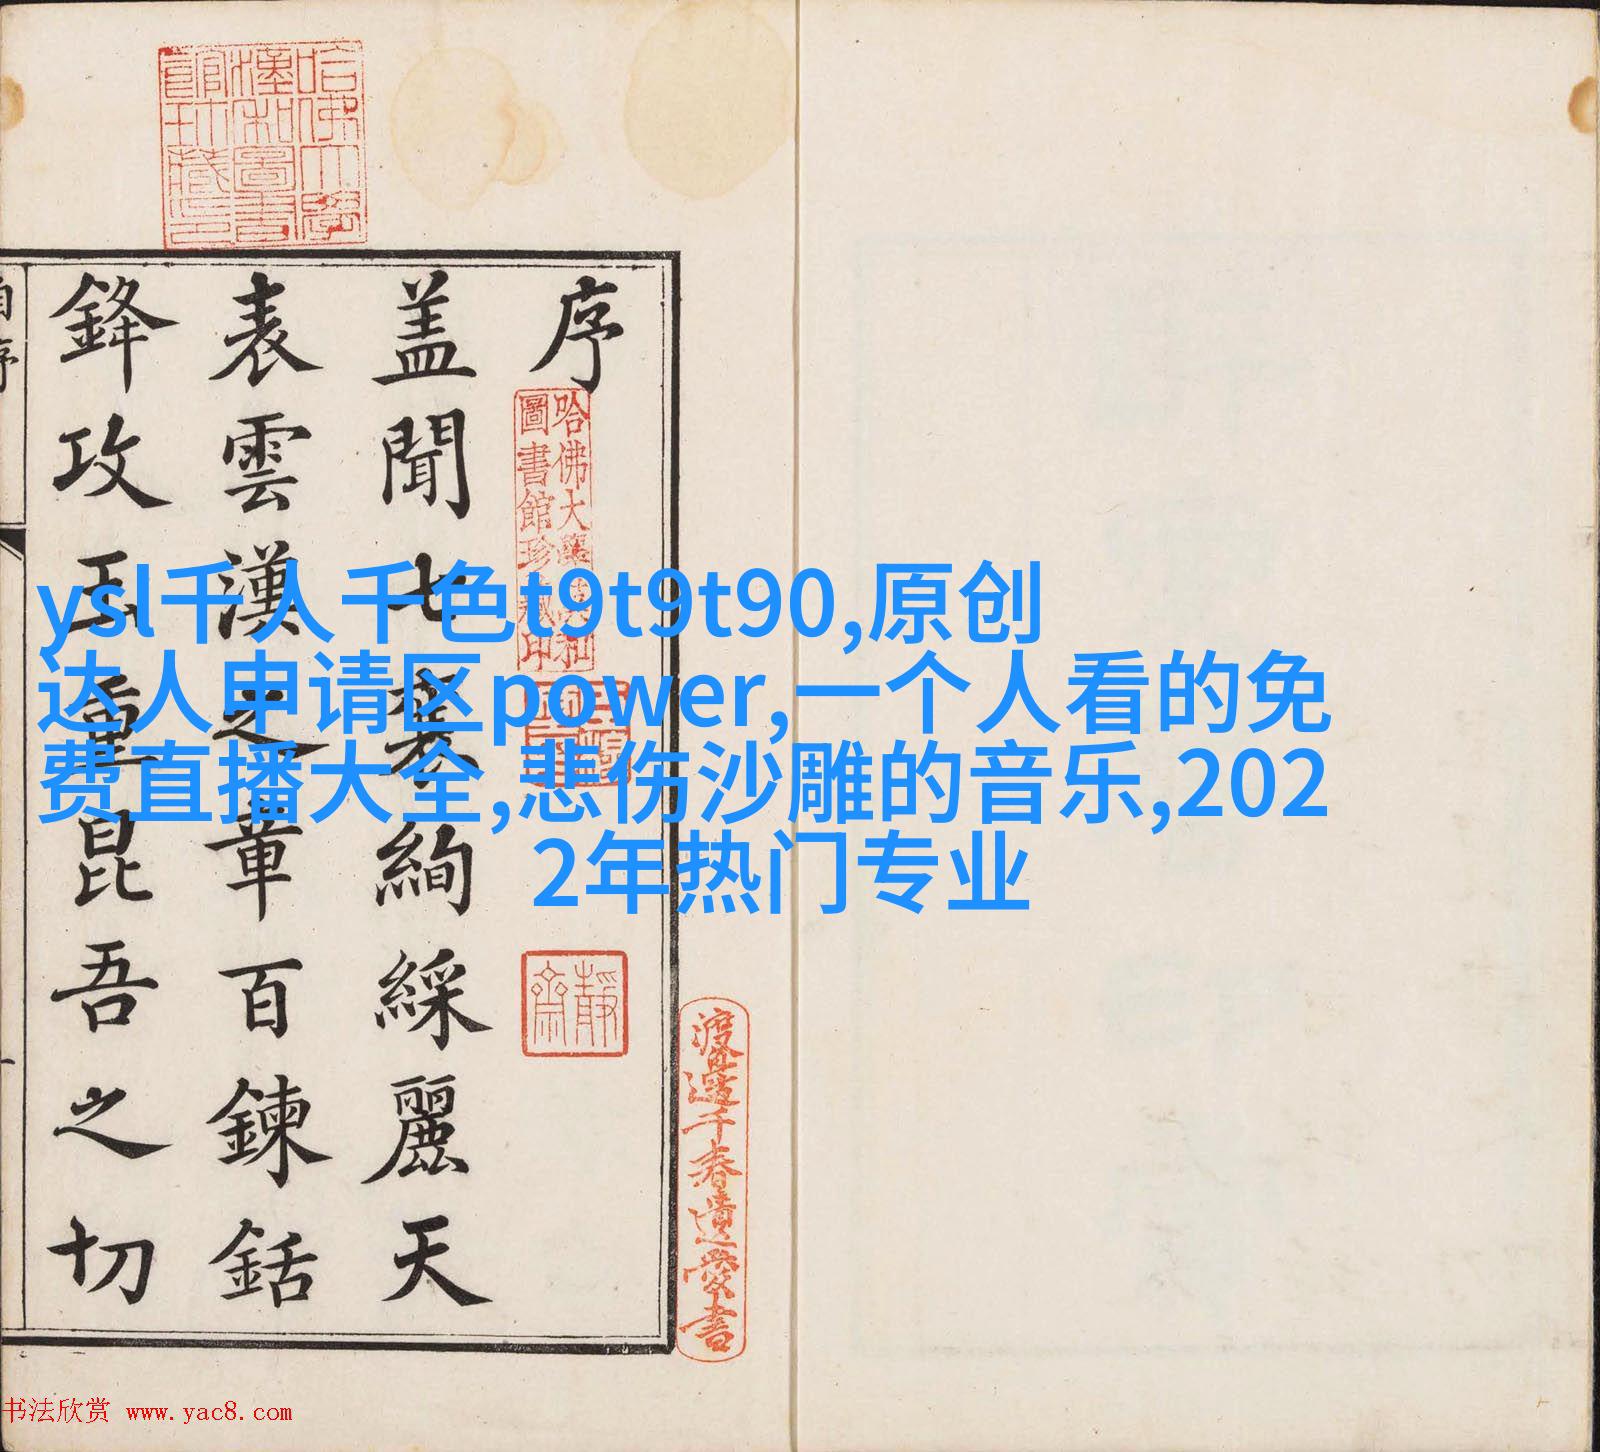 哈佛大學
漢和圖書
館珍藏印
序
哈佛大學漢和
圖書館珍藏印
蓋聞七襄絢綵麗天
表雲漢之章百鍊銛
鋒攻玉重昆吾之切
自序
靜
齋
渡邊千春遺愛書
ysl千人千色t9t9t90,原创
达人申请区power,一个人看的免
费直播大全,悲伤沙雕的音乐,202
2年热门专业
书法欣赏 www.yac8.com